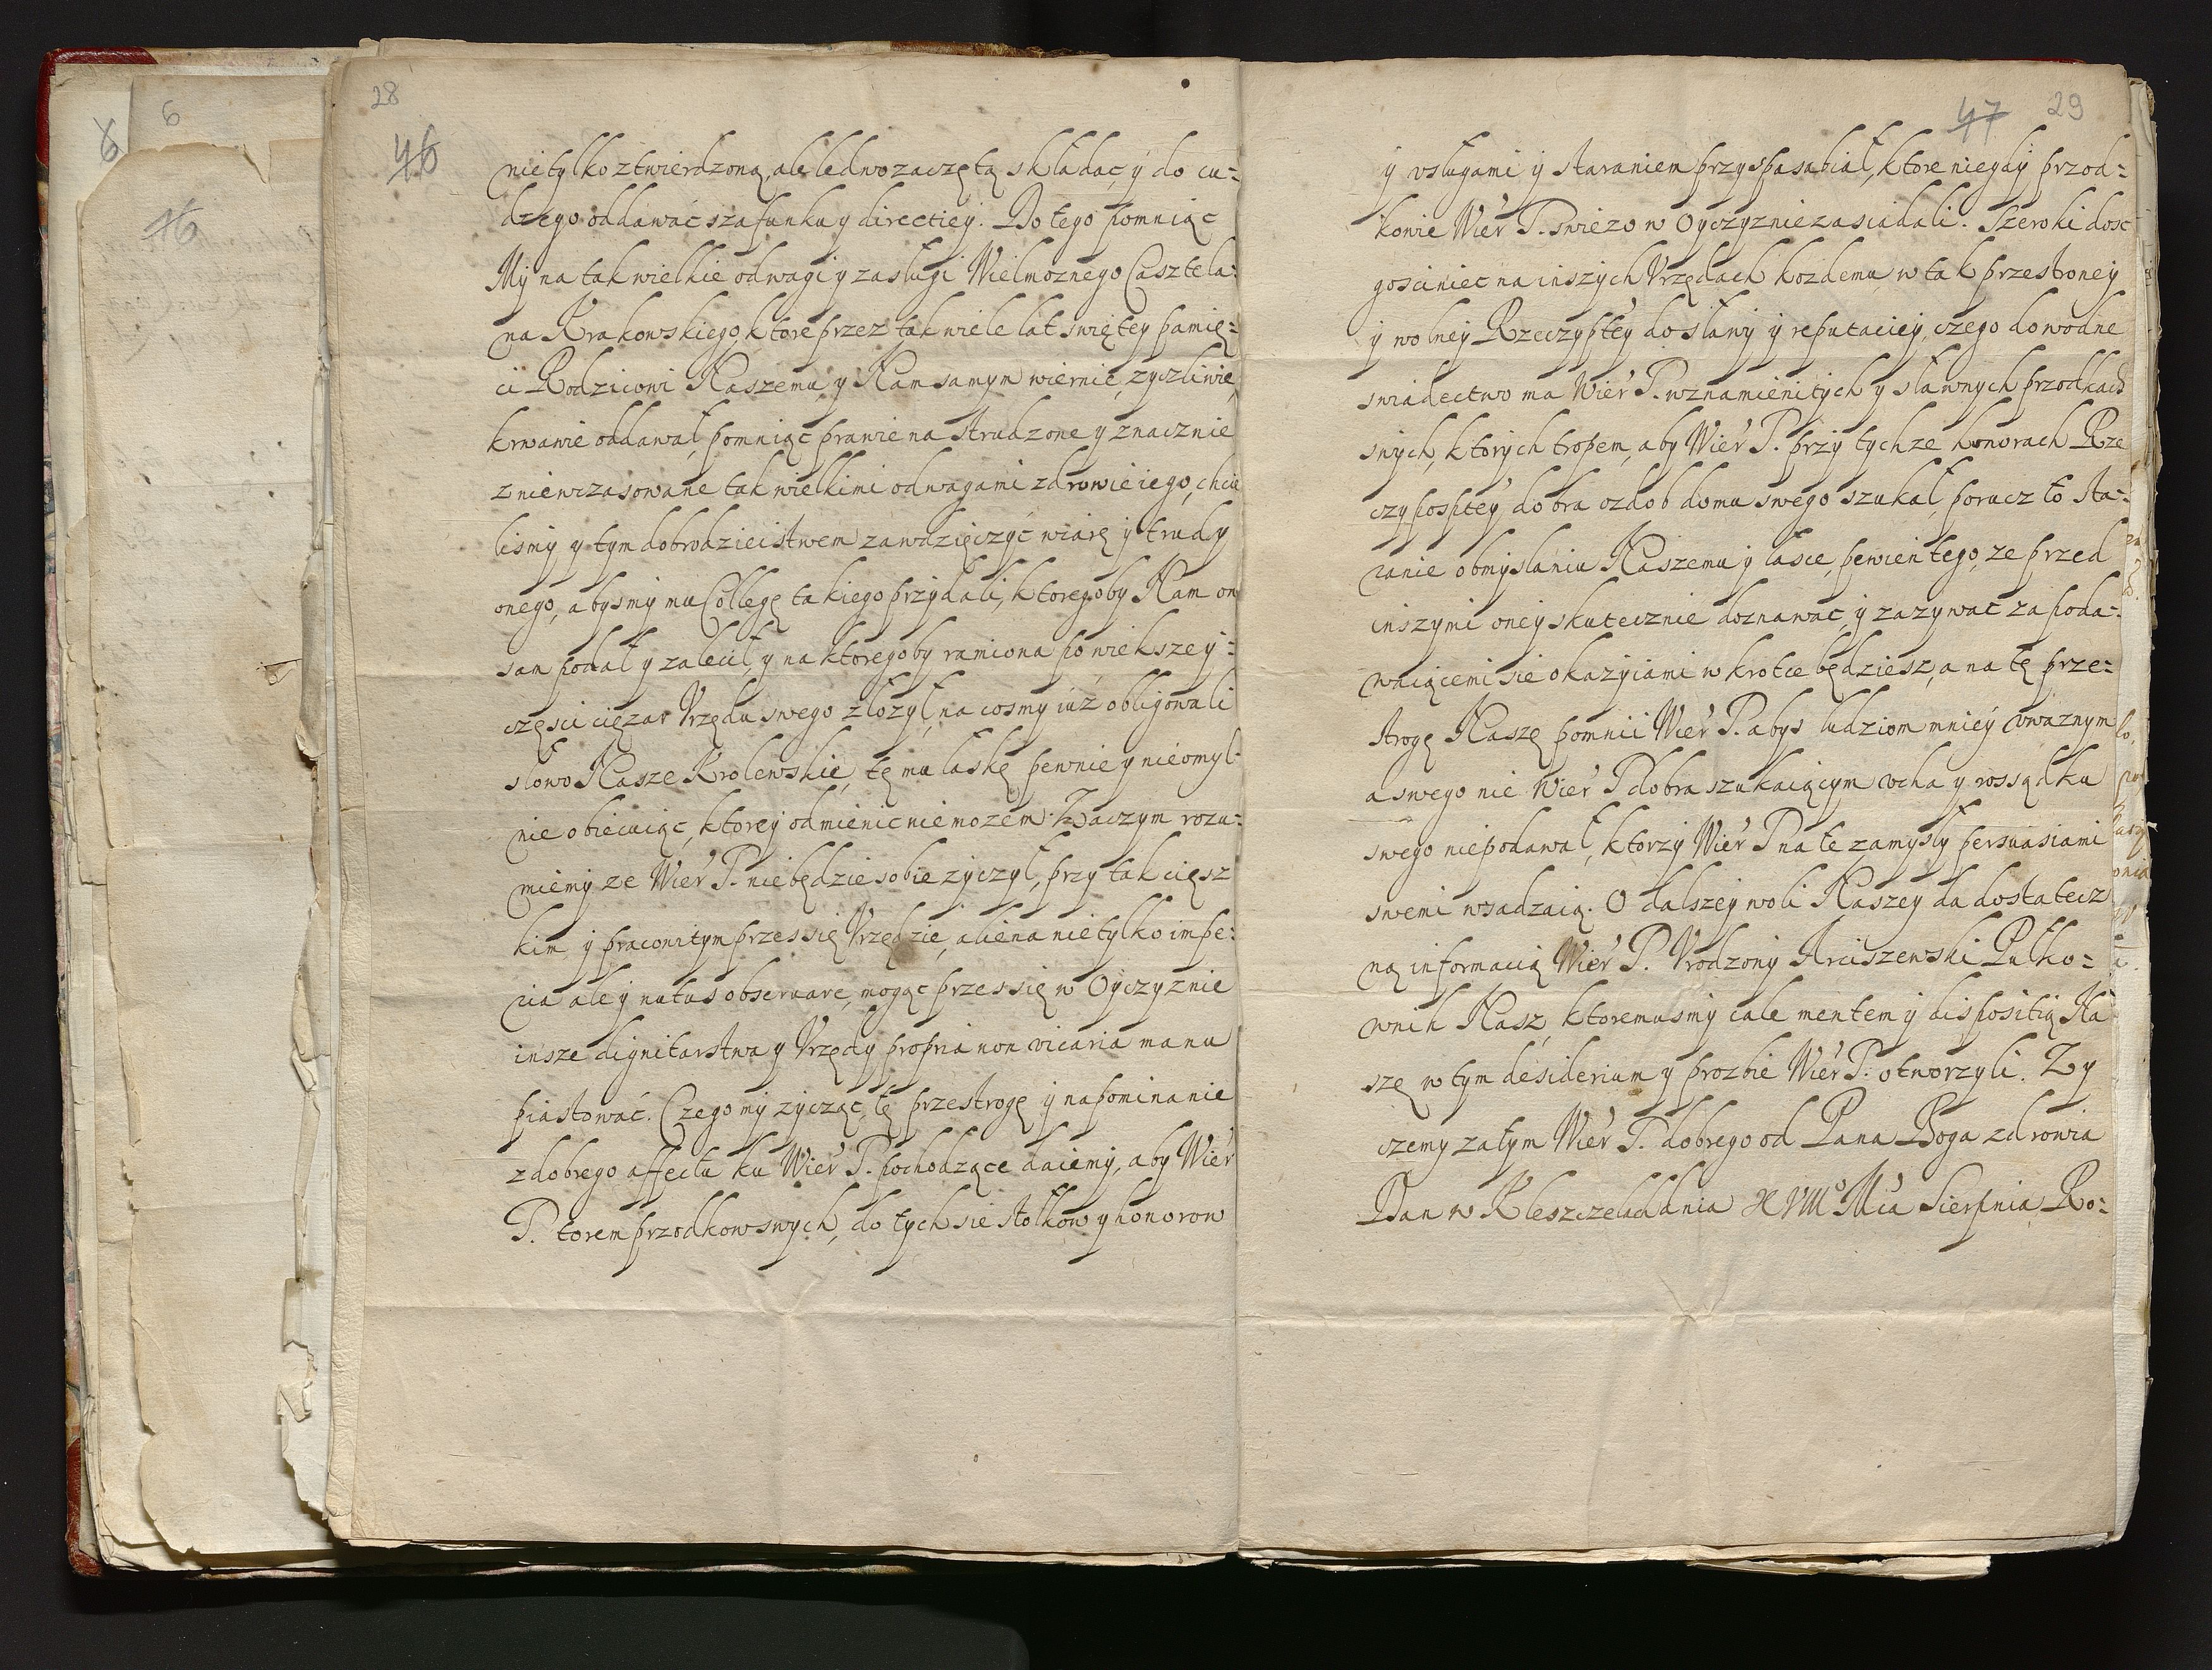 6
6
46
28
46
nietylko ztwierdzoną, ale ledwo zaczętą składać, y do cu=
dzego oddawać szafunku y directiey. Do tego pomniąc
My na tak wielkie odwagi y zasługi Wielmoznego Casztela=
na Krakowskiego, ktore przez tak wiele lat swiętey pamię=
ci Rodzicowi Naszemu, y Nam samym wiernie, zyczliwie,
krwawie oddawał, pomniąc prawie na strudzone y znacznie
zniewczasowane tak wielkimi odwagami zdrowie iego, chcie
lismy y tym dobrodzieistwem zawdzięczyć wiarę y trudy
onego, abysmy mu Collegę takiego przydali, ktoregoby Nam on
sam podał y zalecił, y na ktoregoby ramiona po większey=
części cięzar Vrzędu swego złozył, na cosmy iuż obligowali
słowo Nasze Krolewskie, tę mu łaskę pewnie y nieomyl=
nie obiecuiąc, ktorey odmienic niemozem. Zaczym rozu=
miemy ze Wier P. niebędzie sobie zyczył, przy tak cięsz
kim, y pracowitym przessię Vrzędzie, aliena nietylko impe=
ria ale y nutus obseruare, mogąc przessię w Oyczyznie
insze dignitarstwa y Vrzędy propria non vicaria manu
piastować. Czego my zycząc, tę przestrogę y napominanie
z dobrego affectu ku Wier P. pochodzące daiemy, aby Wier
P. torem przodkow swych, do tych sie stołkow y honorow
47 29
y vsługami y staraniem przysposabiał, ktore niegdy przod=
kowie Wier P. swiezo w Oyczyznie zasiadali. Szeroki dosc
gosciniec na inszych Vrzędach kozdemu w tak przestroney
y wolney Rzeczyptey do sławy y reputaciey, czego dowodne
swiadectwo ma Wier P. w znamienitych y sławnych przodkach
swych, ktorych tropem, aby Wier P. przy tychze honorach Rze
czypospitey dobra ozdob domu swego szukał, porucz to sta=
ranie obmyslaniu Naszemu y łasce, pewien tego, ze przed
inszymi oney skutecznie doznawac, y zazywac za poda=
waiącemi sie okazyiami wkrotce będziesz, a na tę prze=
strogę Naszę pomnii Wier P. abys ludziom mniey vwaznym
a swego nie Wier P. dobra szukaiącym vcha y rossądku
swego niepodawał, ktorzy Wier P. na te zamysły persuasiami
swemi wsadzaią. O dalszey woli Naszey da dostatecz
ną informacią Wier P. Vrodzony Arciszewski Pułko=
wnik Nasz, ktoremusmy cale mentem y dispositią Na
szę w tym desiderium y prozbie Wier P. otworzyli. Zy
czemy zatym Wier P. dobrego od Pana Boga zdrowia
Dan w Kleszczelach dnia XVIIIº Mca Sierpnia Ro=